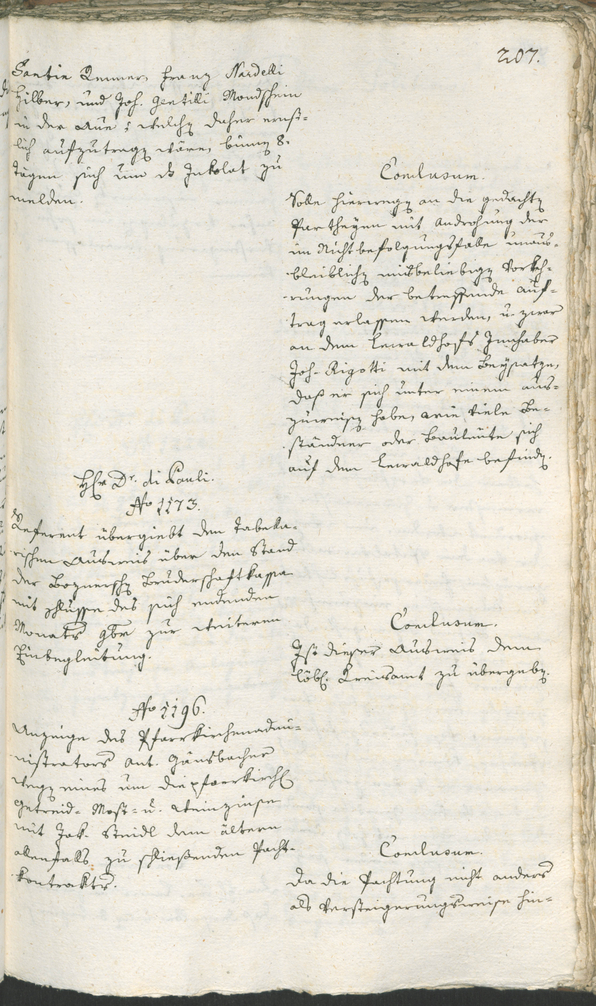 207.
Santin Zenner, Franz Nardelli
Hilber, und Joh. Gentilli Mondschein
in der Aue; welchen daher ernst-
lich aufzutragen wäre, binnen 8.
Tägen sich um ds Inkolat zu
melden.
Conclusum.
Solle hierwegen an die gedachten
Partheyen mit Androhung der
im Nichtbefolgungsfalle unaus-
bleiblichen misbeliebigen Vorkeh-
rungen der betreffende Auf-
trag erlassen werden, u. zwar
an dem Lewaldhofs Innhaber
Joh. Rigotti mit dem Beysatze,
daß er sich unter einem aus-
zuweisen habe, wie viele Be-
ständner oder Bauleute sich
auf dem Lewaldhofe befinden.
H(er)r Dr. di Pauli.
No 1173.
Referent übergiebt den tabella-
rischen Ausweis über den Stand
der Boznerischen Bruderschaftkasse
mit Schlusse des sich endenden
Monats 9ber zur weiteren
Einbegleitung.
Conclusum.
Ist dieser Ausweis dem
löbl. Kreisamt zu übergeben.
No 1196.
Anzeige des Pfarrkirchenadmi-
nistrators Ant. Gänsbacher
wegen eines um die pfarrkirchl.
Getreid- Most- u. Weinzinse
mit Jak. Steidl dem ältern
allenfalls zu schließenden Pacht-
kontrakts.
Conclusum.
Da die Pachtung nicht anders
als versteigerungsweise hin-